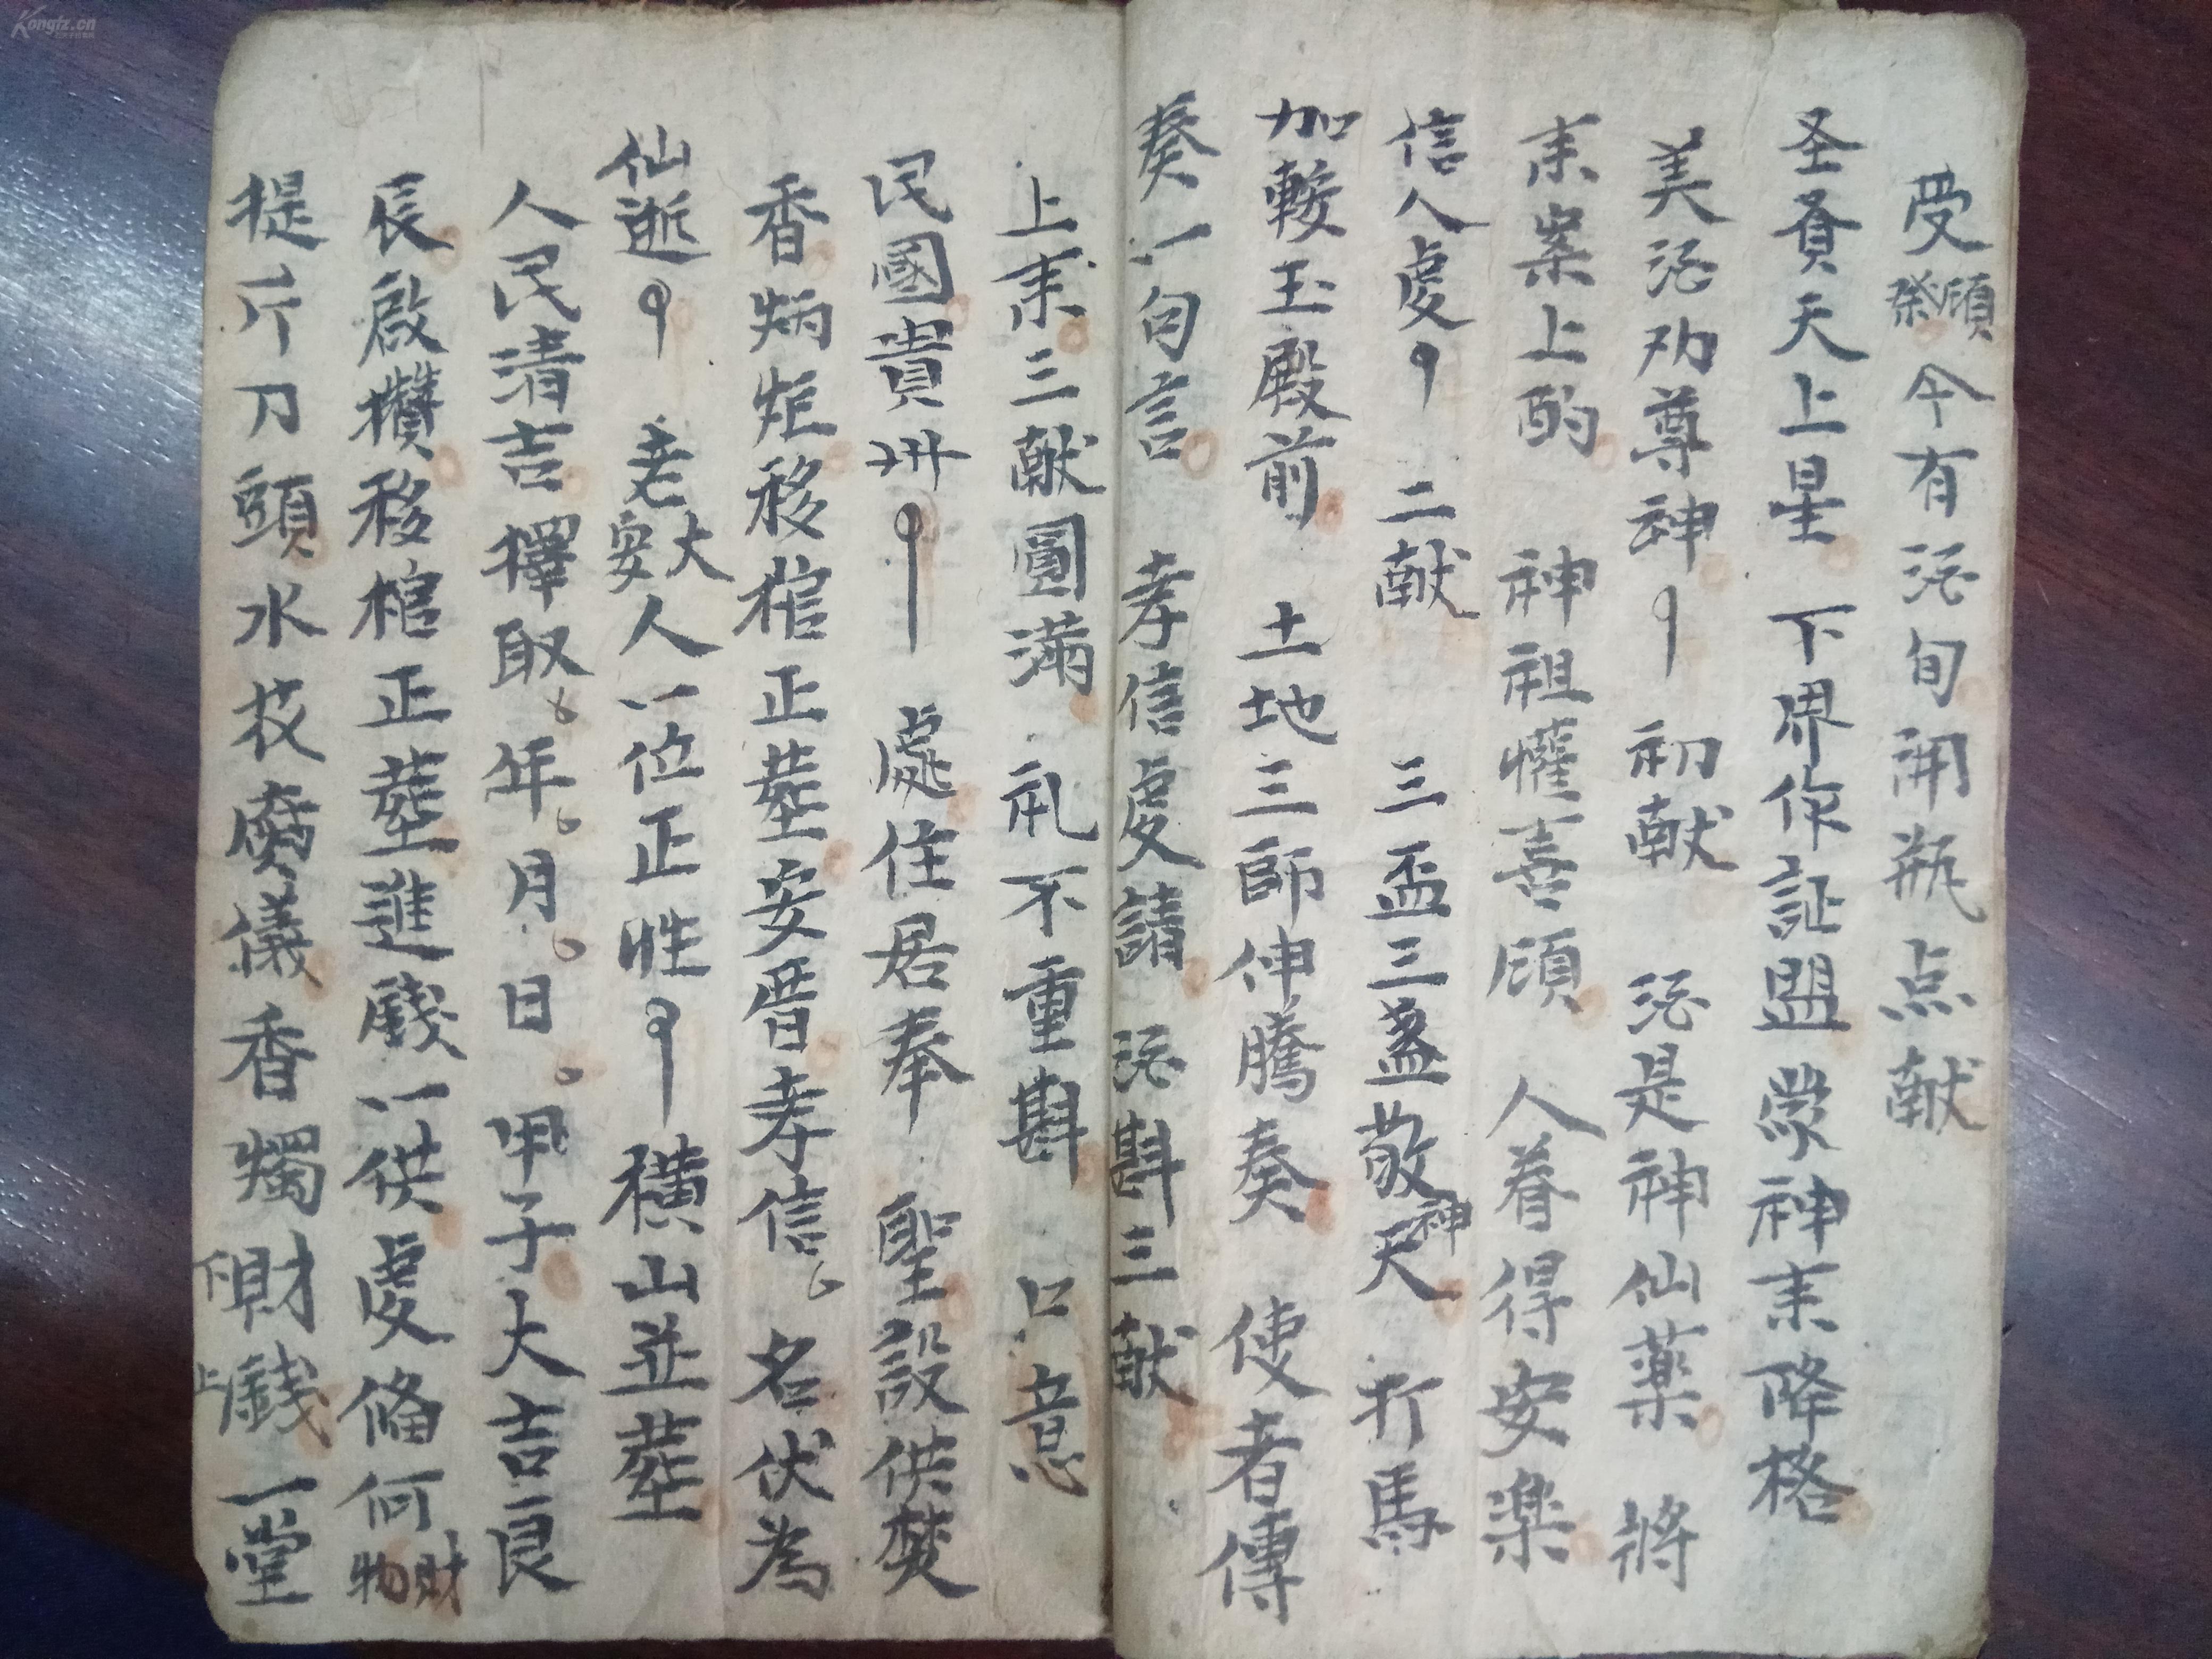 受領祭今有酒旬開瓶点献
圣賁天上星 下界作証盟 衆神来降格
美酒劝尊神 初献 酒是神仙藥 將
来案上酌 神祖懽喜領 人眷得安楽
信人處 二献 三盃三盏敬神天 打馬
加鞍玉殿前 土地三師伸騰奏 使者傳
奏一句言 孝信處請 酒斟三献
上来三献圓满 礼不重斟 口意
民國貴州 處住居奉 聖設供焚
香炳炬移棺正塟安厝孝信 名伏為
仙逝 老大安人一位正性 横山並塟
人民清吉擇取 年 月 日 甲子大吉良
辰啟攢移棺正塟進餞一供處俻何財物
提片刀頭水花齋儀香燭下財上錢一堂
Kongfz.cn